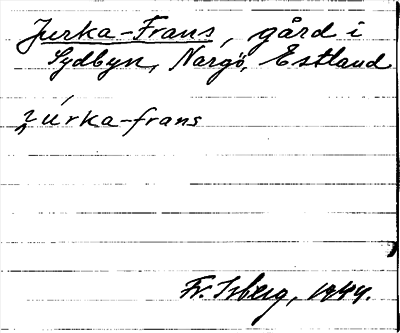 Jurka-Frans, gård i
Sydbyn, Nargö, Estland
Fr. Isberg, 1944.